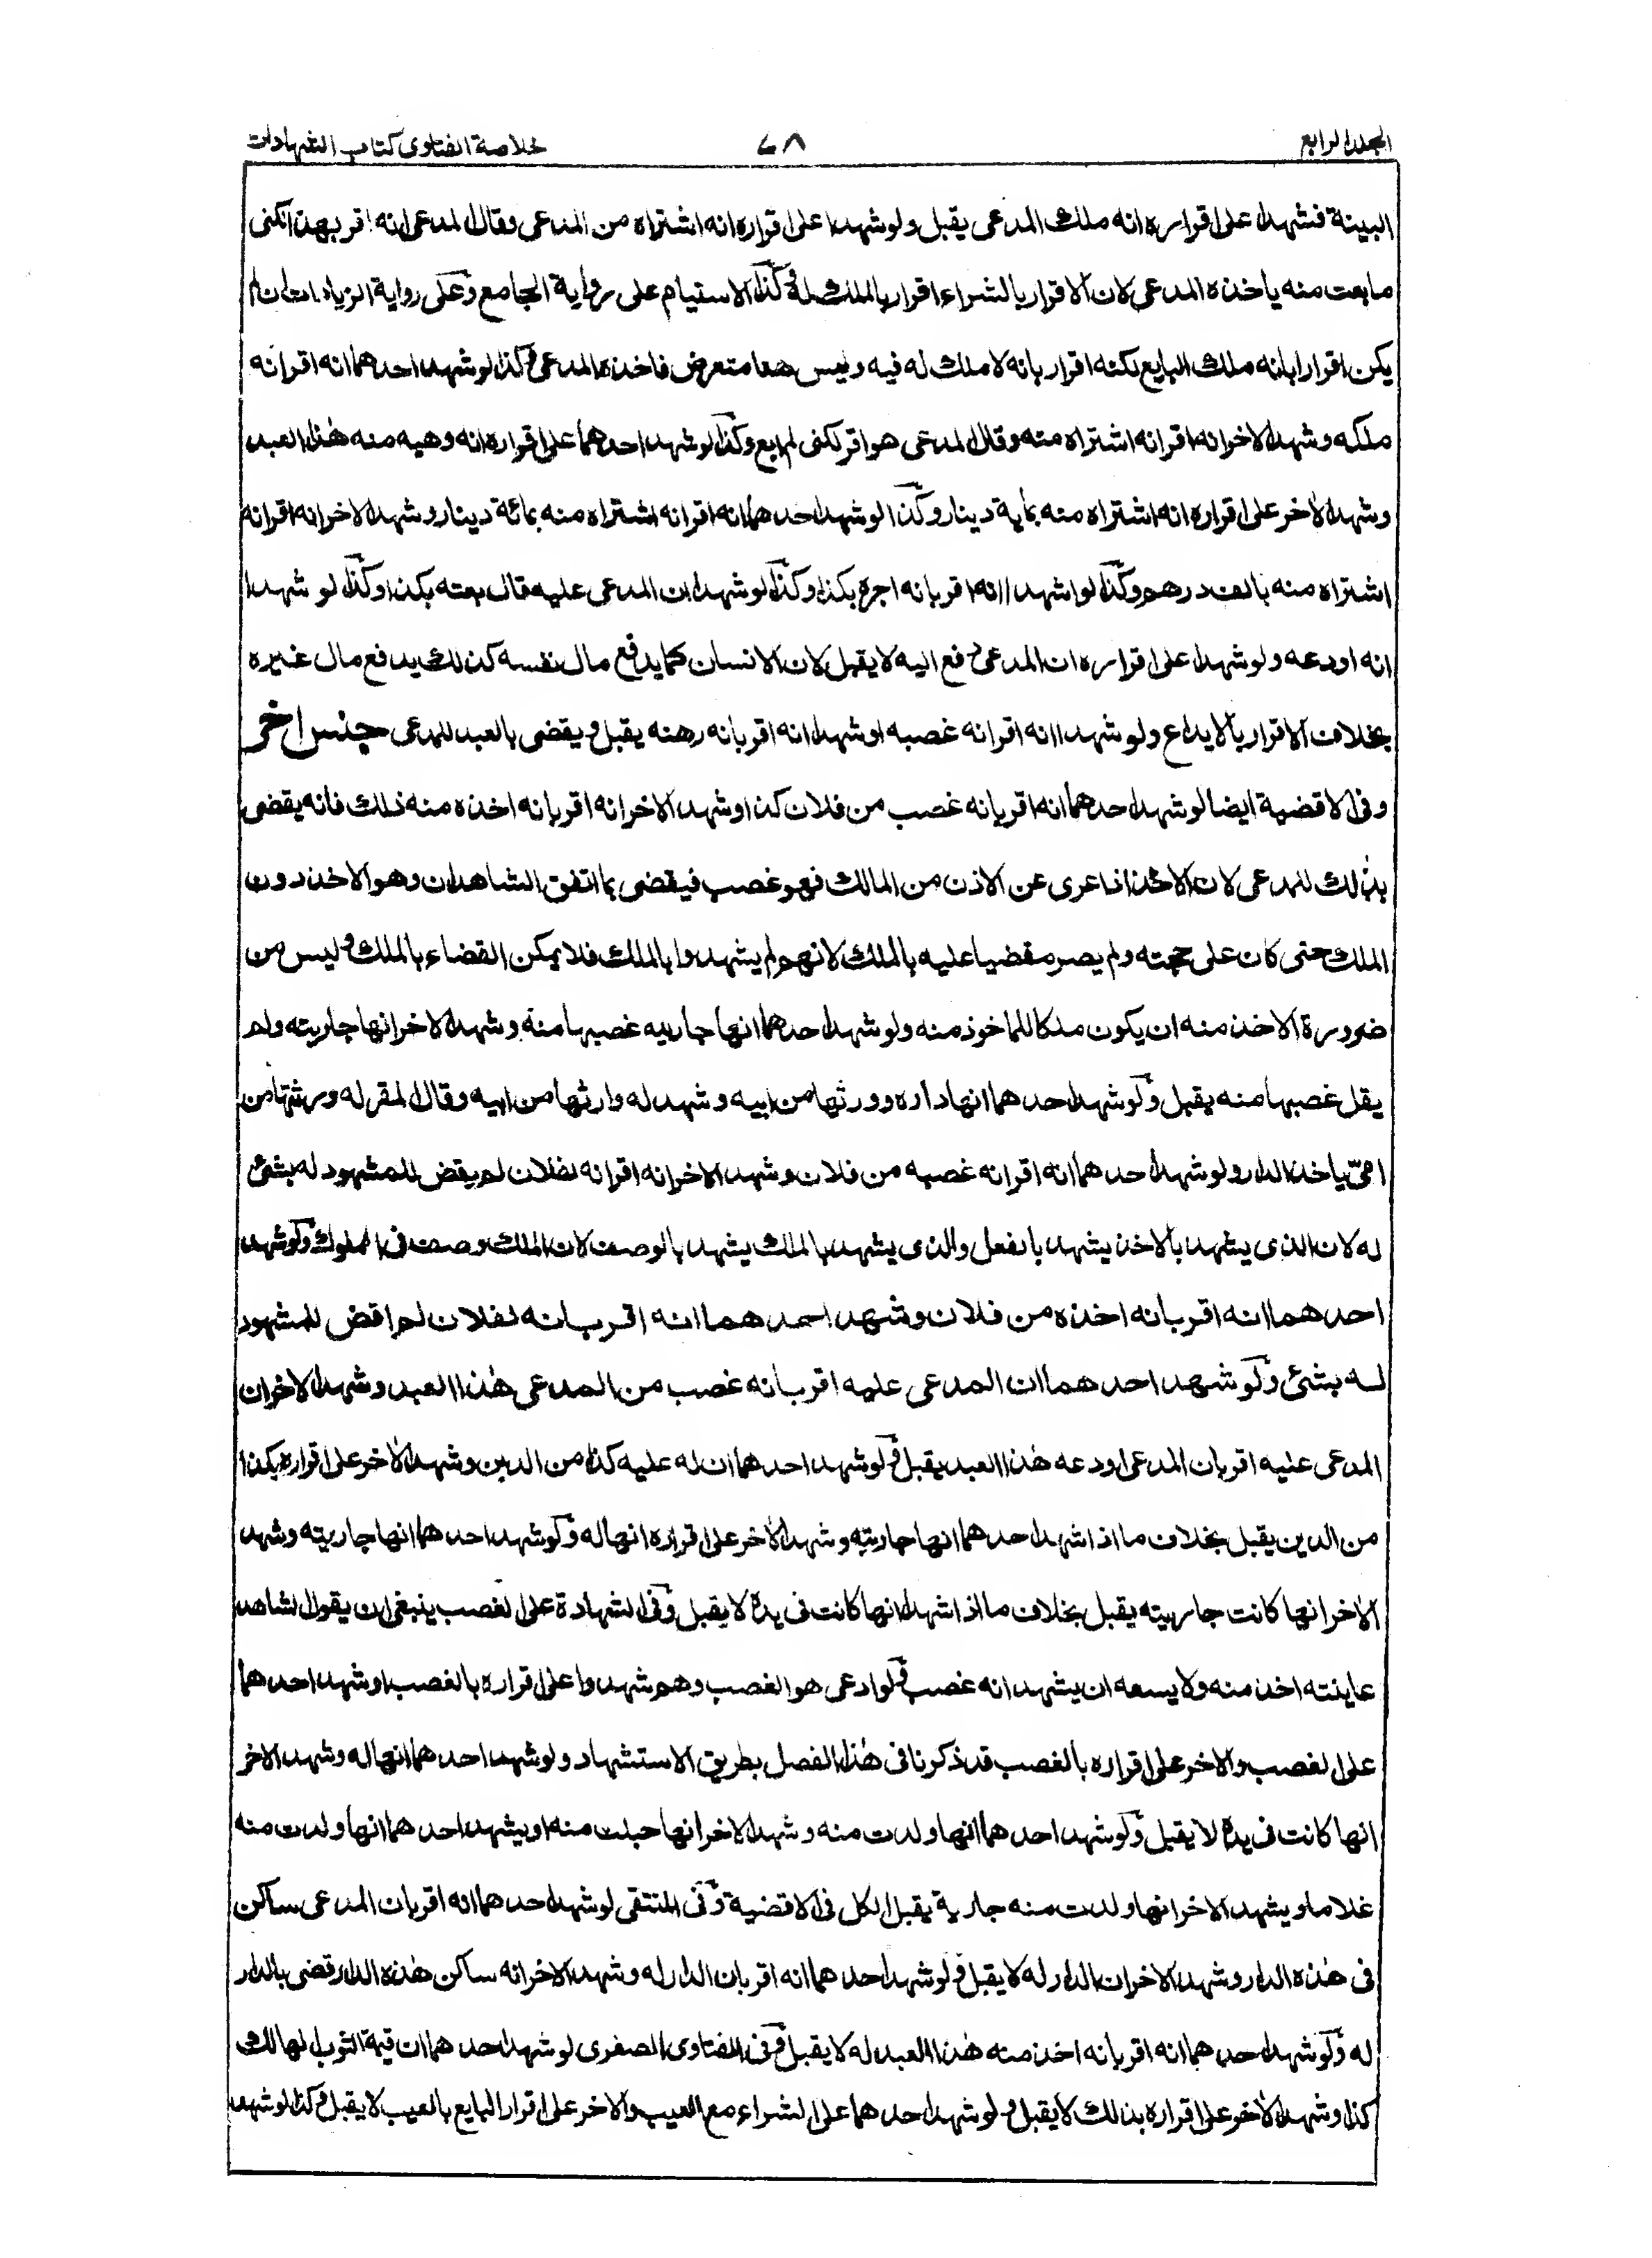 المجلد الرابع
٧٨
خلاصة الفتاوى كتاب الشهادات
البينة فشهدا على اقراره انه ملك المدعى يقبل ولو شهدا على اقراره انه اشتراه من المدعى وقال المدعى انه اقر بهذا لكنى
ما بعت منه ياخذه المدعى لان الاقرار بالشراء اقرار بالملك له وكذا الاستيام على رواية الجامع وعلى رواية الزيادات ان لم
يكن اقرارا بانه ملك البايع لكنه اقرار بانه لا ملك له فيه وليس ههنا متعرض فاخذه المدعى وكذا لو شهد احدهما انه اقر انه
ملكه وشهد الاخر انه اقر انه اشتراه منه وقال المدعى هو اقر لكنى لم ابع وكذا لو شهد احدهما على اقراره انه وهبه منه هذا العبد
وشهد الاخر على اقراره انه اشتراه منه بماية دينار وكذا لو شهد احدهما انه اقر انه اشتراه منه بمائة دينار وشهد الاخر انه اقر انه
اشتراه منه بالف درهم وكذا لو شهدا انه اقر بانه اجره بكذا وكذا لو شهدا ان المدعى عليه قال بعته بكذا وكذا لو شهدا
انه اودعه ولو شهدا على اقراره ان المدعى دفع اليه لا يقبل لان الانسان كما يدفع مال نفسه كذلك يدفع مال غيره
بخلاف الاقرار بالايداع ولو شهدا انه اقر انه غصبه او شهدا انه اقر بانه رهنه يقبل ويقضى بالعبد للمدعى جنس اخر
وفى الاقضية ايضا لو شهد احدهما انه اقر بانه غصب من فلان كذا وشهد الاخر انه اقر بانه اخذه منه ذلك فانه يقضى
بذلك للمدعى لان الاخذ اذا عرى عن الاذن من المالك فهو غصب فيقضى بما اتفق الشاهدان وهو الاخذ دون
الملك حتى كان على حجته ولم يصر مقضيا عليه بالملك لانهم لم يشهدوا بالملك فلا يمكن القضاء بالملك وليس من
ضرورة الاخذ منه ان يكون ملكا للماخوذ منه ولو شهد احدهما انها جاريته غصبها منه وشهد الاخر انها جاريته ولم
يقل غصبها منه يقبل ولو شهد احدهما انها داره وورثها من ابيه وشهد له وارثها من ابيه وقال المقر له ورثتها من
امى ياخذ الدار ولو شهد احدهما انه اقر انه غصبه من فلان وشهد الاخر انه اقر انه لفلان لم يقض للمشهود له بشئ
له لان الذى يشهد بالاخذ يشهد بالفعل والذى يشهد بالملك يشهد بالوصف لان الملك وصف فى المملوك ولو شهد
احدهما انه اقر بانه اخذه من فلان وشهد احدهما انه اقر بانه لفلان لم اقض للمشهود
له بشئ ولو شهد احدهما ان المدعى عليه اقر بانه غصب من المدعى هذا العبد وشهد الاخر ان
المدعى عليه اقر بان المدعى اودعه هذا العبد يقبل ولو شهد احدهما ان له عليه كذا من الدين وشهد الاخر على اقراره بكذا
من الدين يقبل بخلاف ما اذا شهد احدهما انها جاريته وشهد الاخر على اقراره انها له ولو شهد احدهما انها جاريته وشهد
الاخر انها كانت جاريته يقبل بخلاف ما اذا شهد انها كانت فى يده لا يقبل وفى الشهادة على الغصب ينبغى ان يقول الشاهد
عاينته اخذ منه ولا يسعه ان يشهد انه غصب ولو ادعى هو الغصب وهم شهدوا على اقراره بالغصب او شهد احدهما
على الغصب والاخر على اقراره بالغصب قد ذكرنا فى هذا الفصل بطريق الاستشهاد ولو شهد احدهما انها له وشهد الاخر
انها كانت فى يده لا يقبل ولو شهد احدهما انها ولدت منه وشهد الاخر انها حبلت منه او يشهد احدهما انها ولدت منه
غلاما ويشهد الاخر انها ولدت منه جارية يقبل الكل فى الاقضية وفى المنتقى لو شهد احدهما انه اقر بان المدعى ساكن
فى هذه الدار وشهد الاخر ان الدار له لا يقبل ولو شهد احدهما انه اقر بان الدار له وشهد الاخر انه ساكن هذه الدار قضى بالدار
له ولو شهد احدهما انه اقر بانه اخذ منه هذا العبد له لا يقبل وفى الفتاوى الصغرى لو شهد احدهما ان قيمة الثوب الهالك
كذا وشهد الاخر على اقراره بذلك لا يقبل ولو شهد احدهما على الشراء مع العيب والاخر على اقرار البايع بالعيب لا يقبل وكذا لو شهد